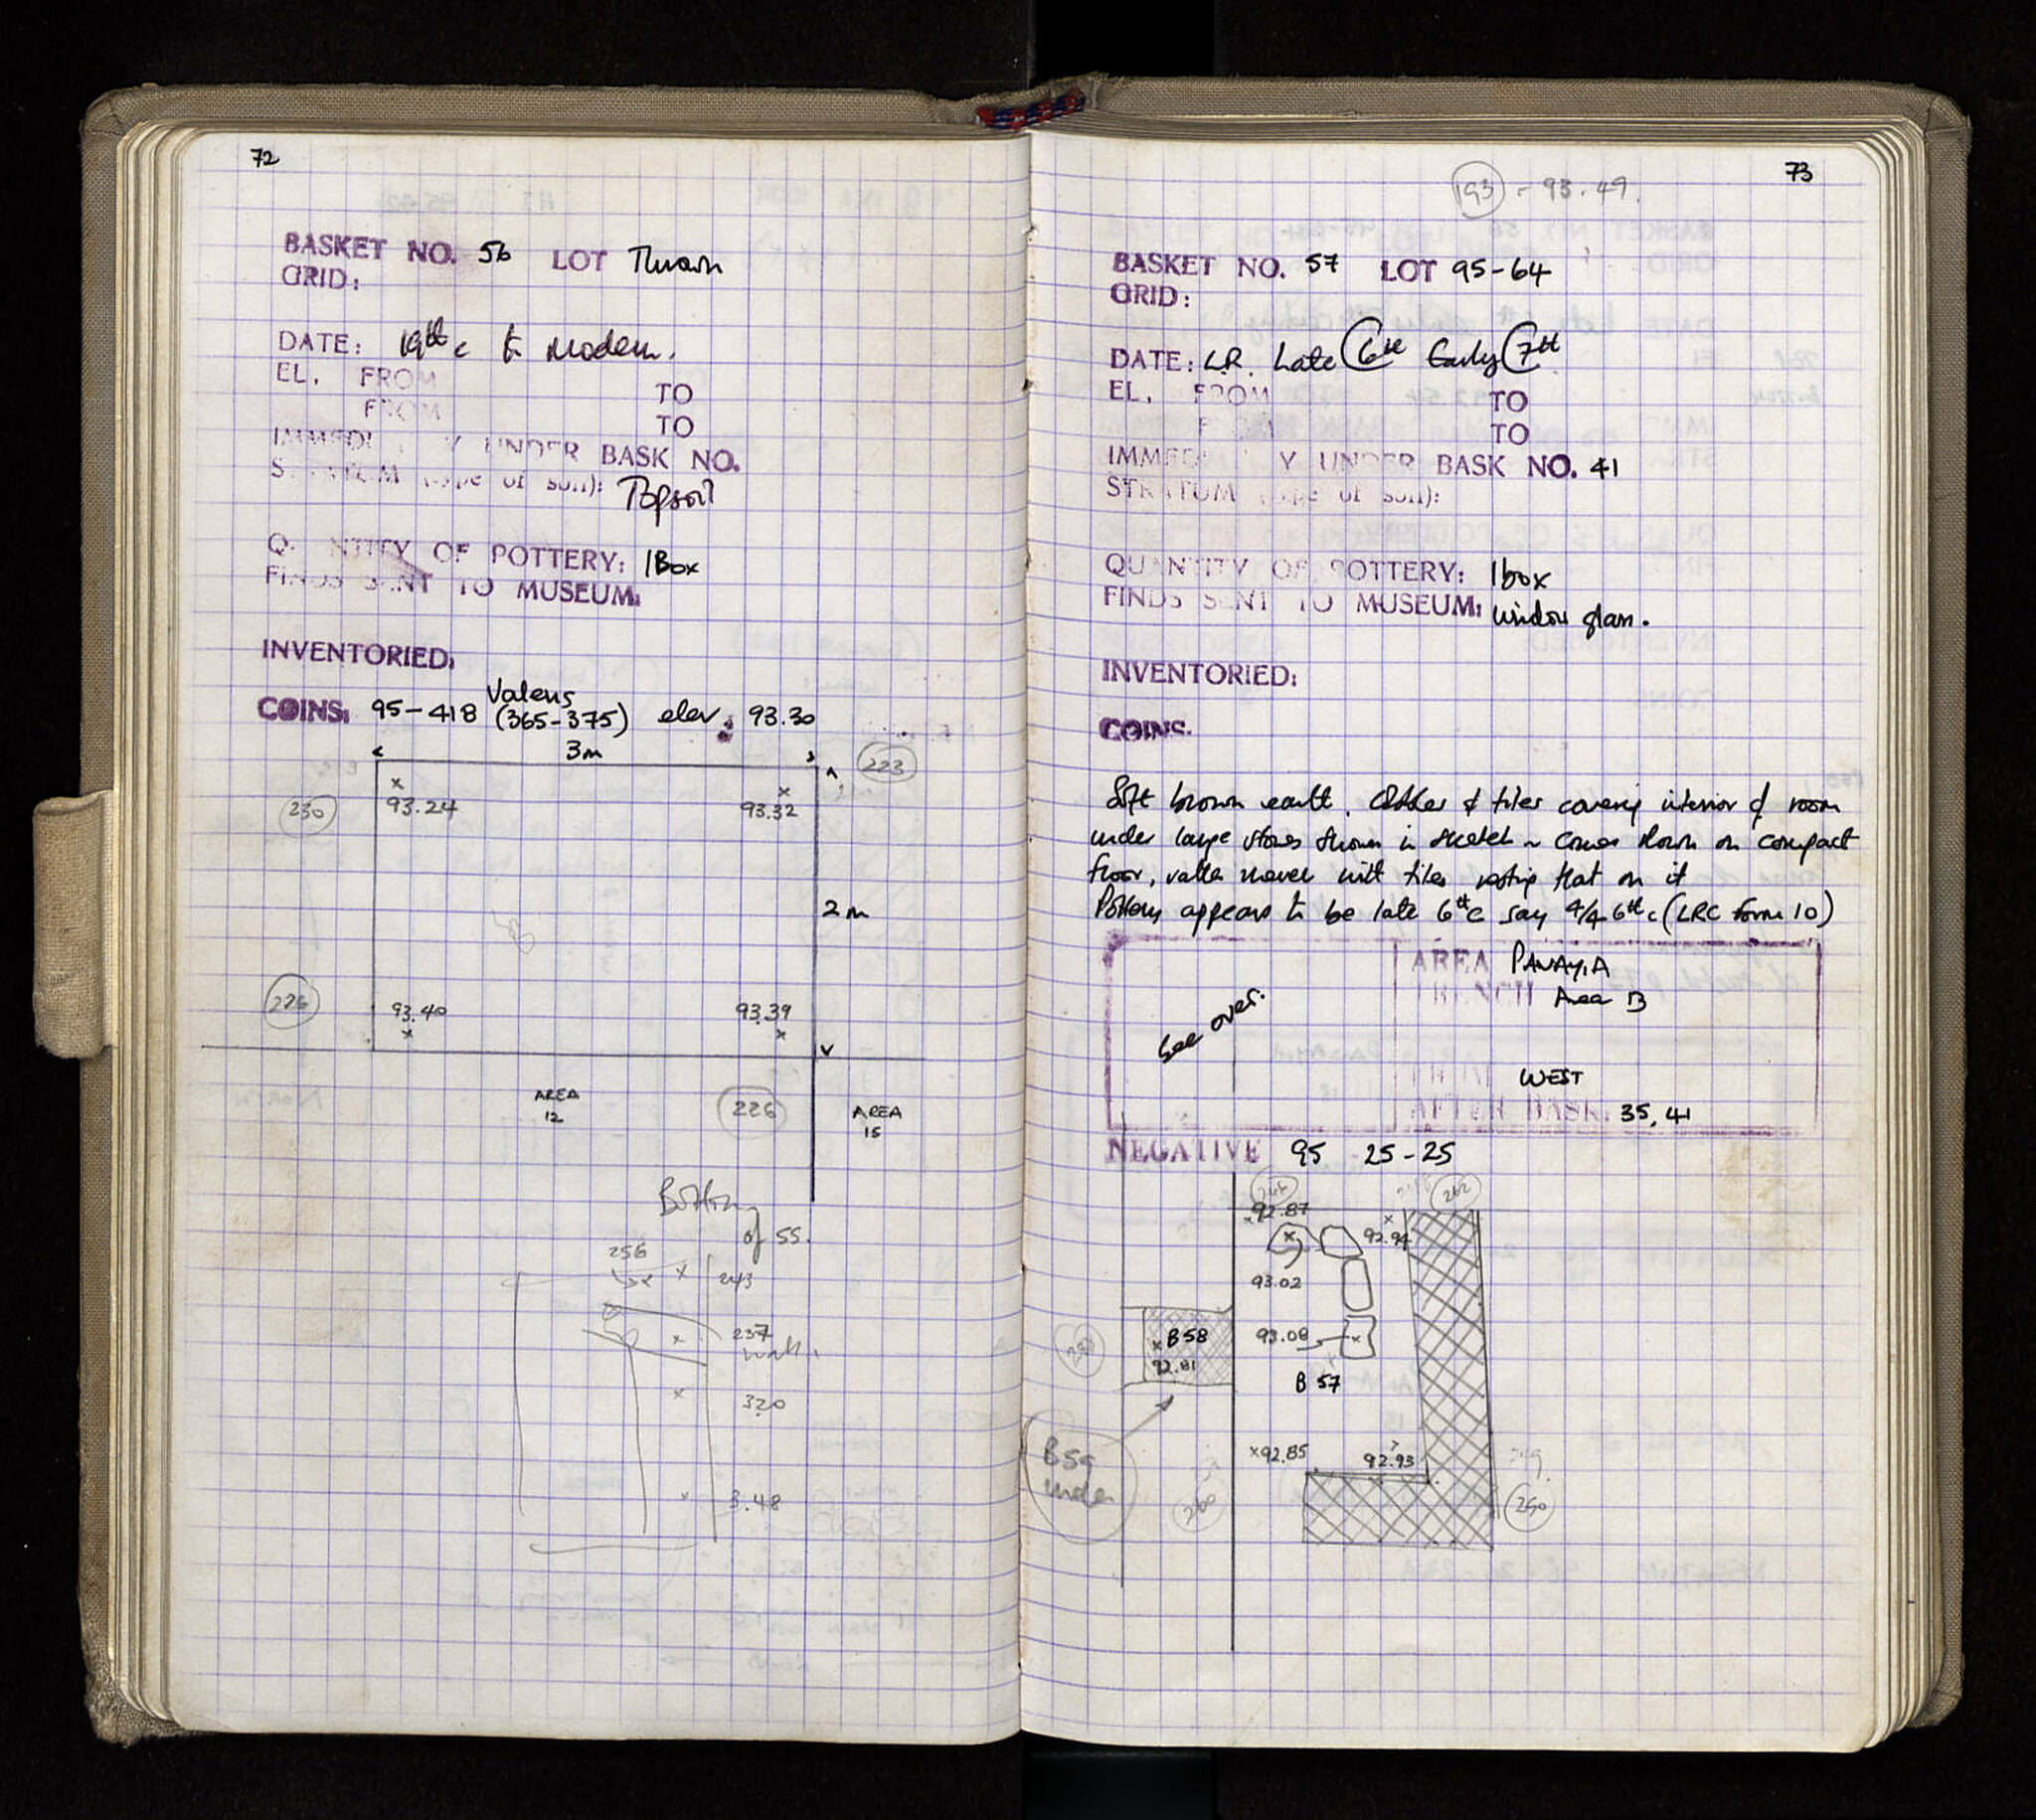 72
BASKET NO. 56 LOT Thrown
GRID:
DATE: 19th c to modern.
EL. FROM TO
FROM TO
IMMEDI Y UNDER BASK NO.
STRATUM (type of soil): Topsoil
QUANTITY OF POTTERY: 1 Box
FINDS SENT TO MUSEUM:
INVENTORIED:
Valens
COINS: 95-418 (365-375) elev. 93.30
3m
223
230
93.24 93.32
2m
226
93.40 93.39
AREA
12
226
AREA
15
Bottom
of 55.
256
243
237
wall.
320
3.48
73
193 - 93.49
BASKET NO. 57 LOT 95-64
GRID:
DATE: LR. Late C6th Early C7th
EL. FROM TO
FROM TO
IMMED Y UNDER BASK NO. 41
STRATUM (type of soil):
QUANTITY OF POTTERY: 1 box
FINDS SENT TO MUSEUM: window glass.
INVENTORIED:
COINS:
Soft brown earth. Cobbles & tiles covering interior of room
under large stones shown in sketch ~ comes down on compact
floor, rather uneven with tiles resting flat on it
Pottery appears to be late 6th c say 4/4 6th c (LRC Form 10)
See over.
AREA PANAYIA
TRENCH Area B
FROM WEST
AFTER BASK. 35, 41
NEGATIVE 95 25-25
262
92.87
92.94
93.02
B 58
92.81
93.08
B 57
92.85
92.93
B59
under
260
249
250